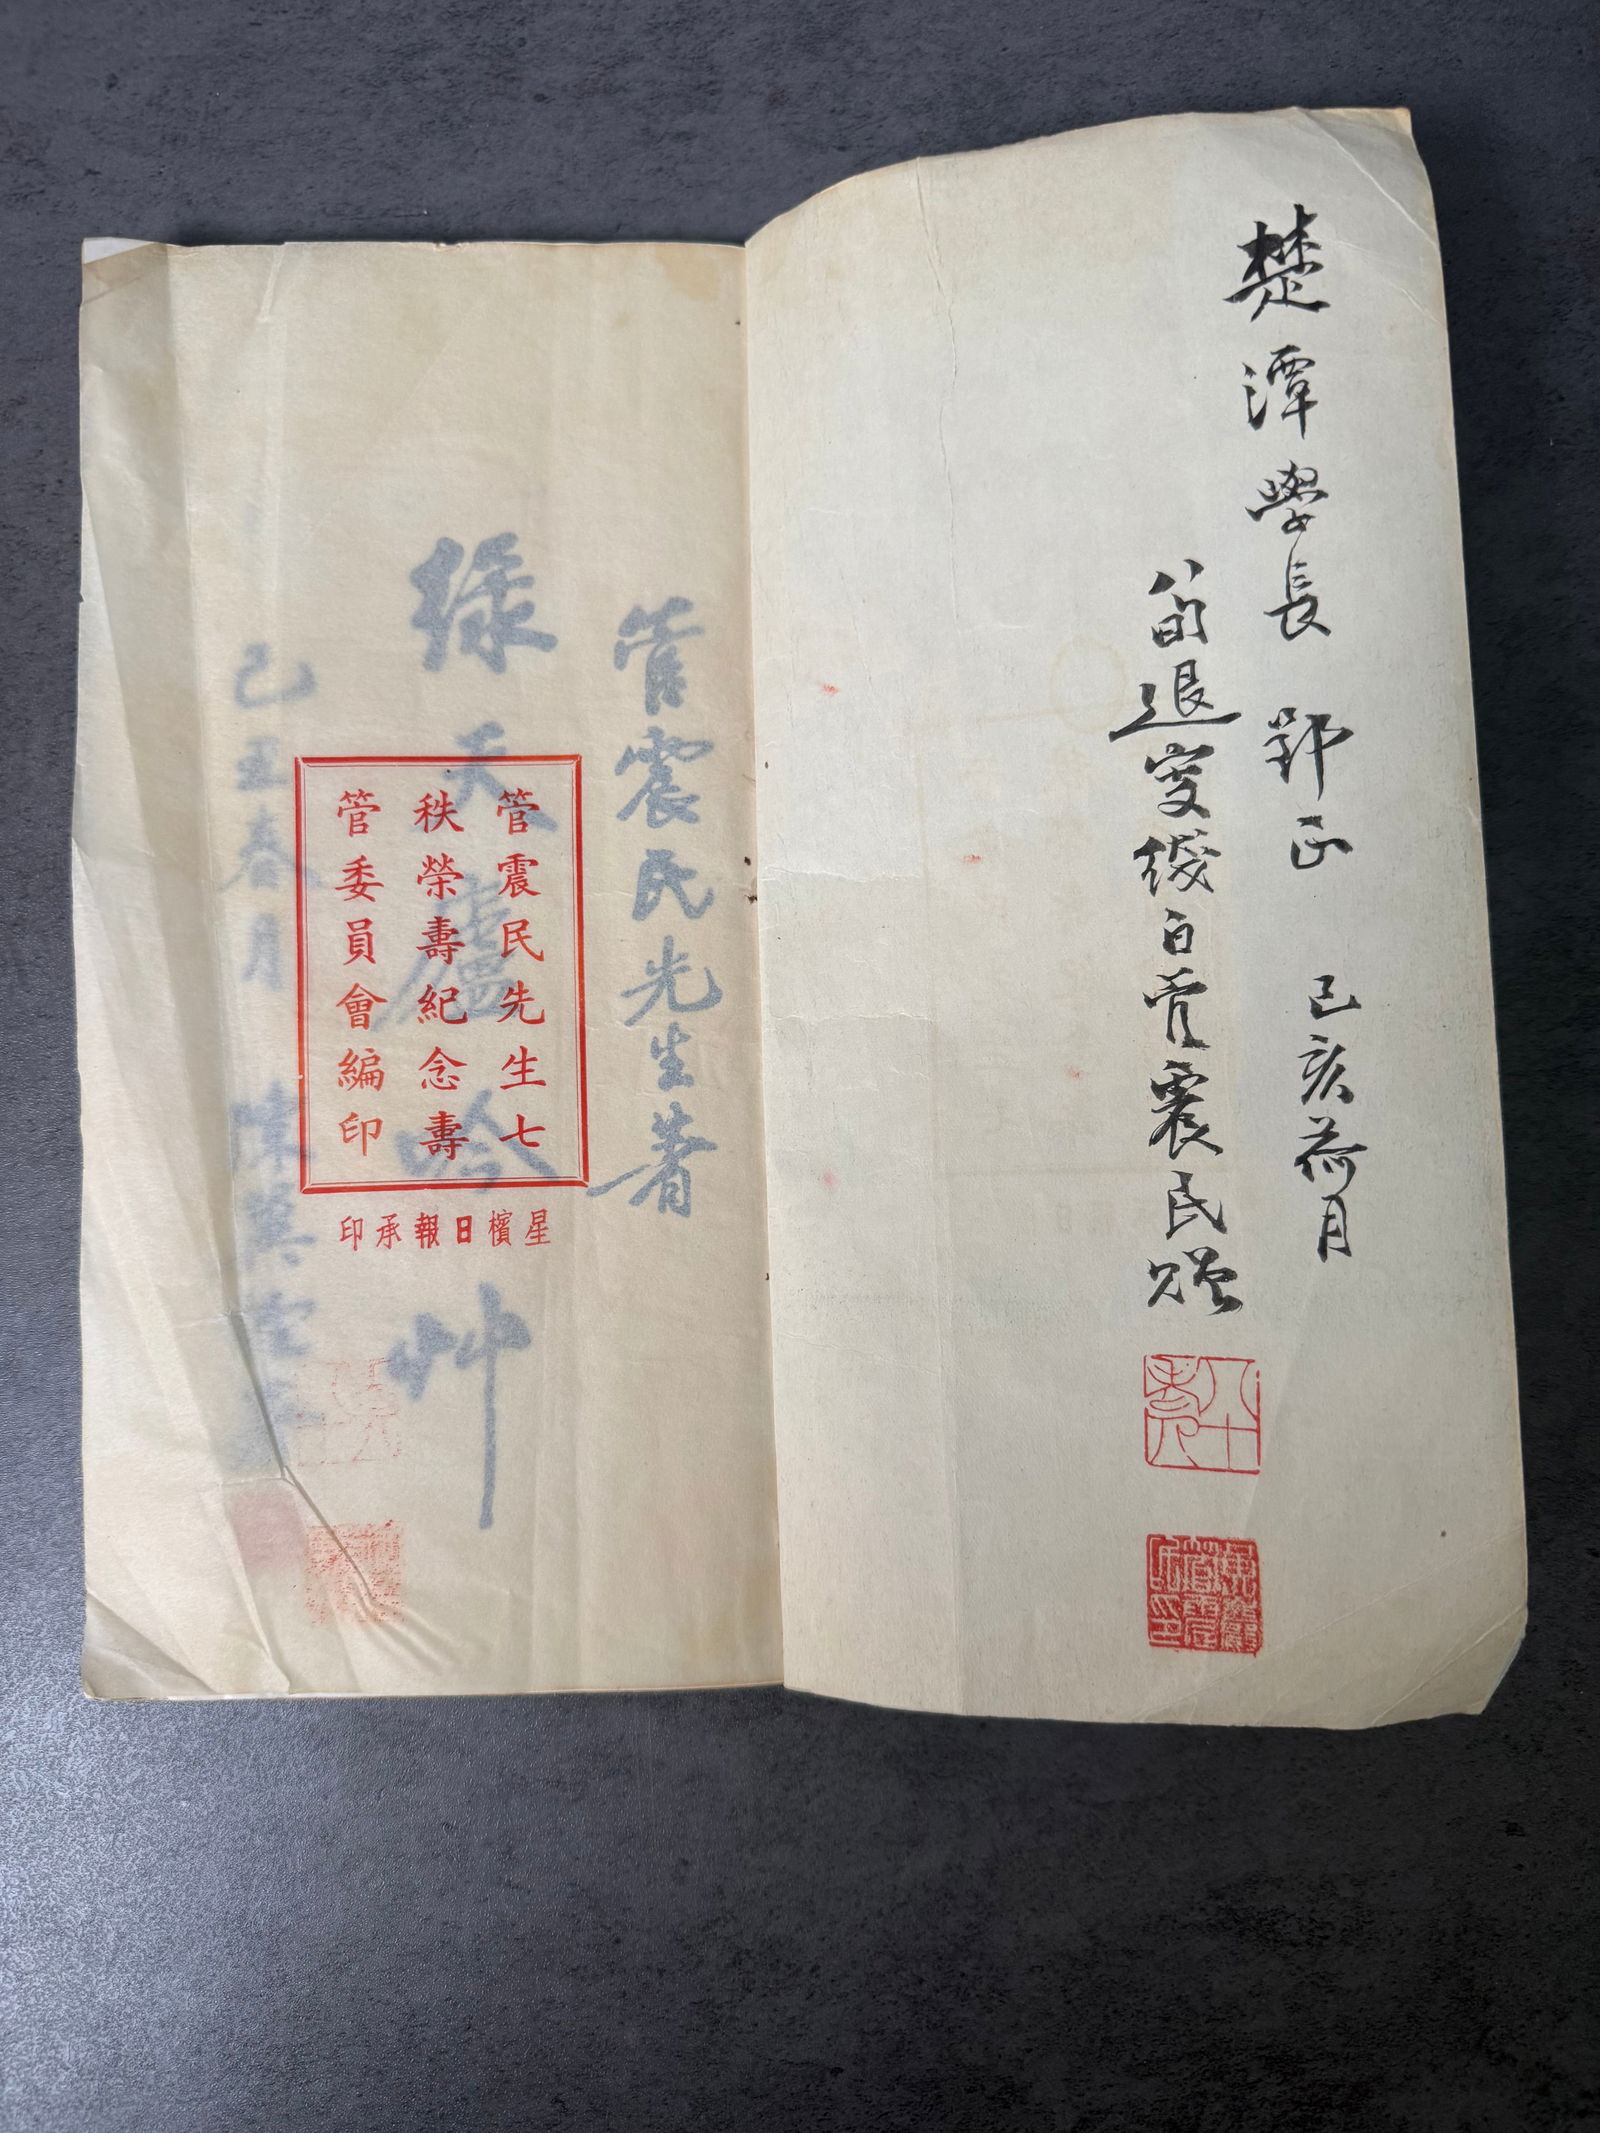 楚潭學長 郢正 己亥荷月
八旬退叟綬白管震民贈
管震民先生著
綠天廬吟艸
己丑春月
管震民先生七
秩榮壽紀念壽
管委員會編印
星檳日報承印